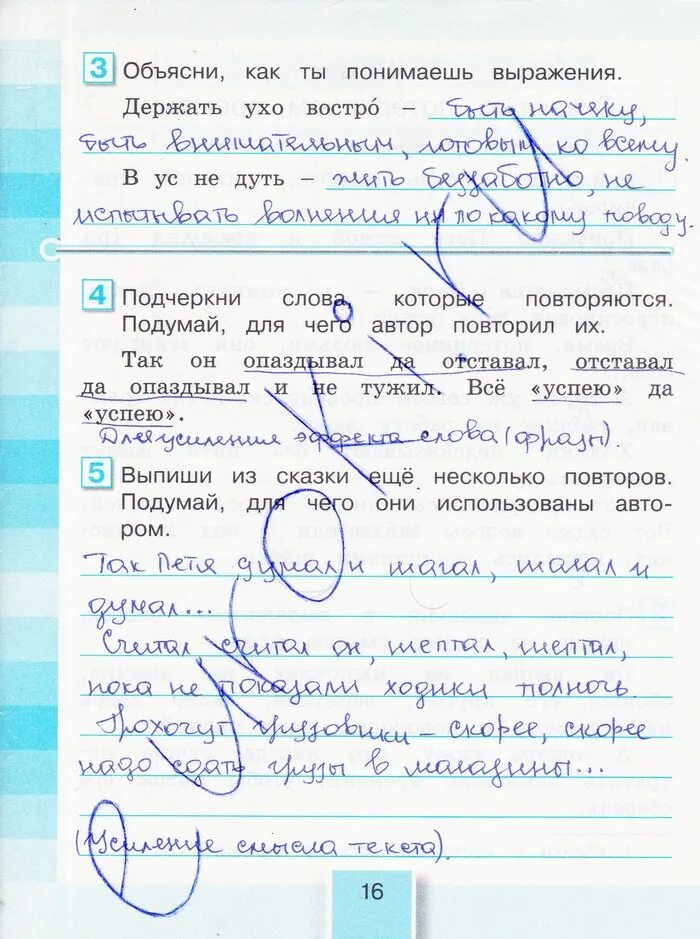 3 Объясни, как ты понимаешь выражения.
Держать ухо востро́ – быть начеку,
быть внимательным, готовым ко всему.
В ус не дуть – жить беззаботно, не
испытывать волнения ни по какому поводу.
4 Подчеркни слова, которые повторяются.
Подумай, для чего автор повторил их.
Так он опаздывал да отставал, отставал
да опаздывал и не тужил. Всё «успею» да
«успею».
Для усиления эффекта слова (фразы).
5 Выпиши из сказки ещё несколько повторов.
Подумай, для чего они использованы авто-
ром.
Так Петя думал и шагал, шагал и
думал...
Считал, считал он, шептал, шептал,
пока не показали ходики полночь
Грохочут грузовики – скорее, скорее
надо сдать грузы в магазины...
(Усиление смысла текста).
16